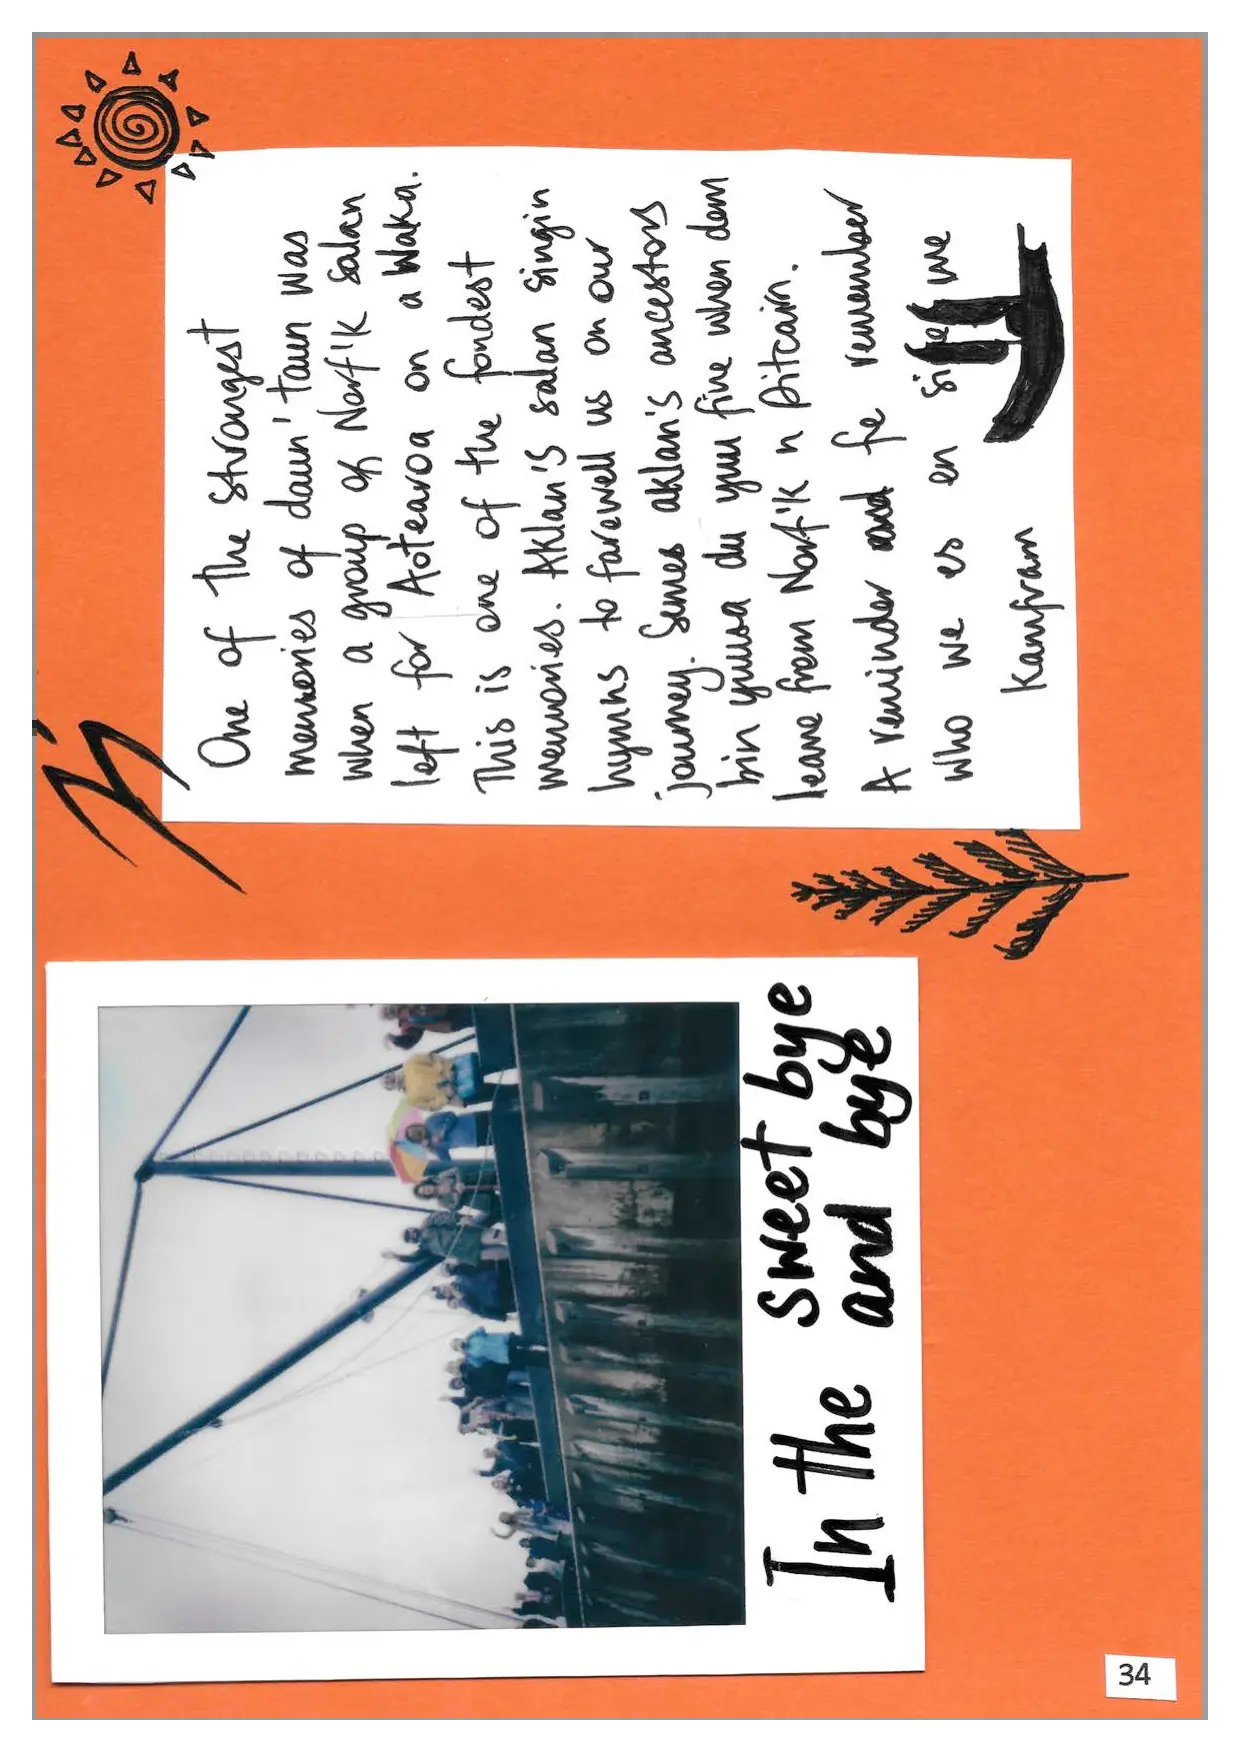 In the sweet bye
and bye
One of the strongest
memories of daun' taun was
when a group of Norf'k salan
left for Aotearoa on a Waka.
This is one of the fondest
memories. Aklan's salan singin
hymns to farewell us on our
journey. Semes aklan's ancestors
bin du when dem
leave from Norf'k n Pitcairn.
A reminder and fe remember
who we es en side we
kamfram
34